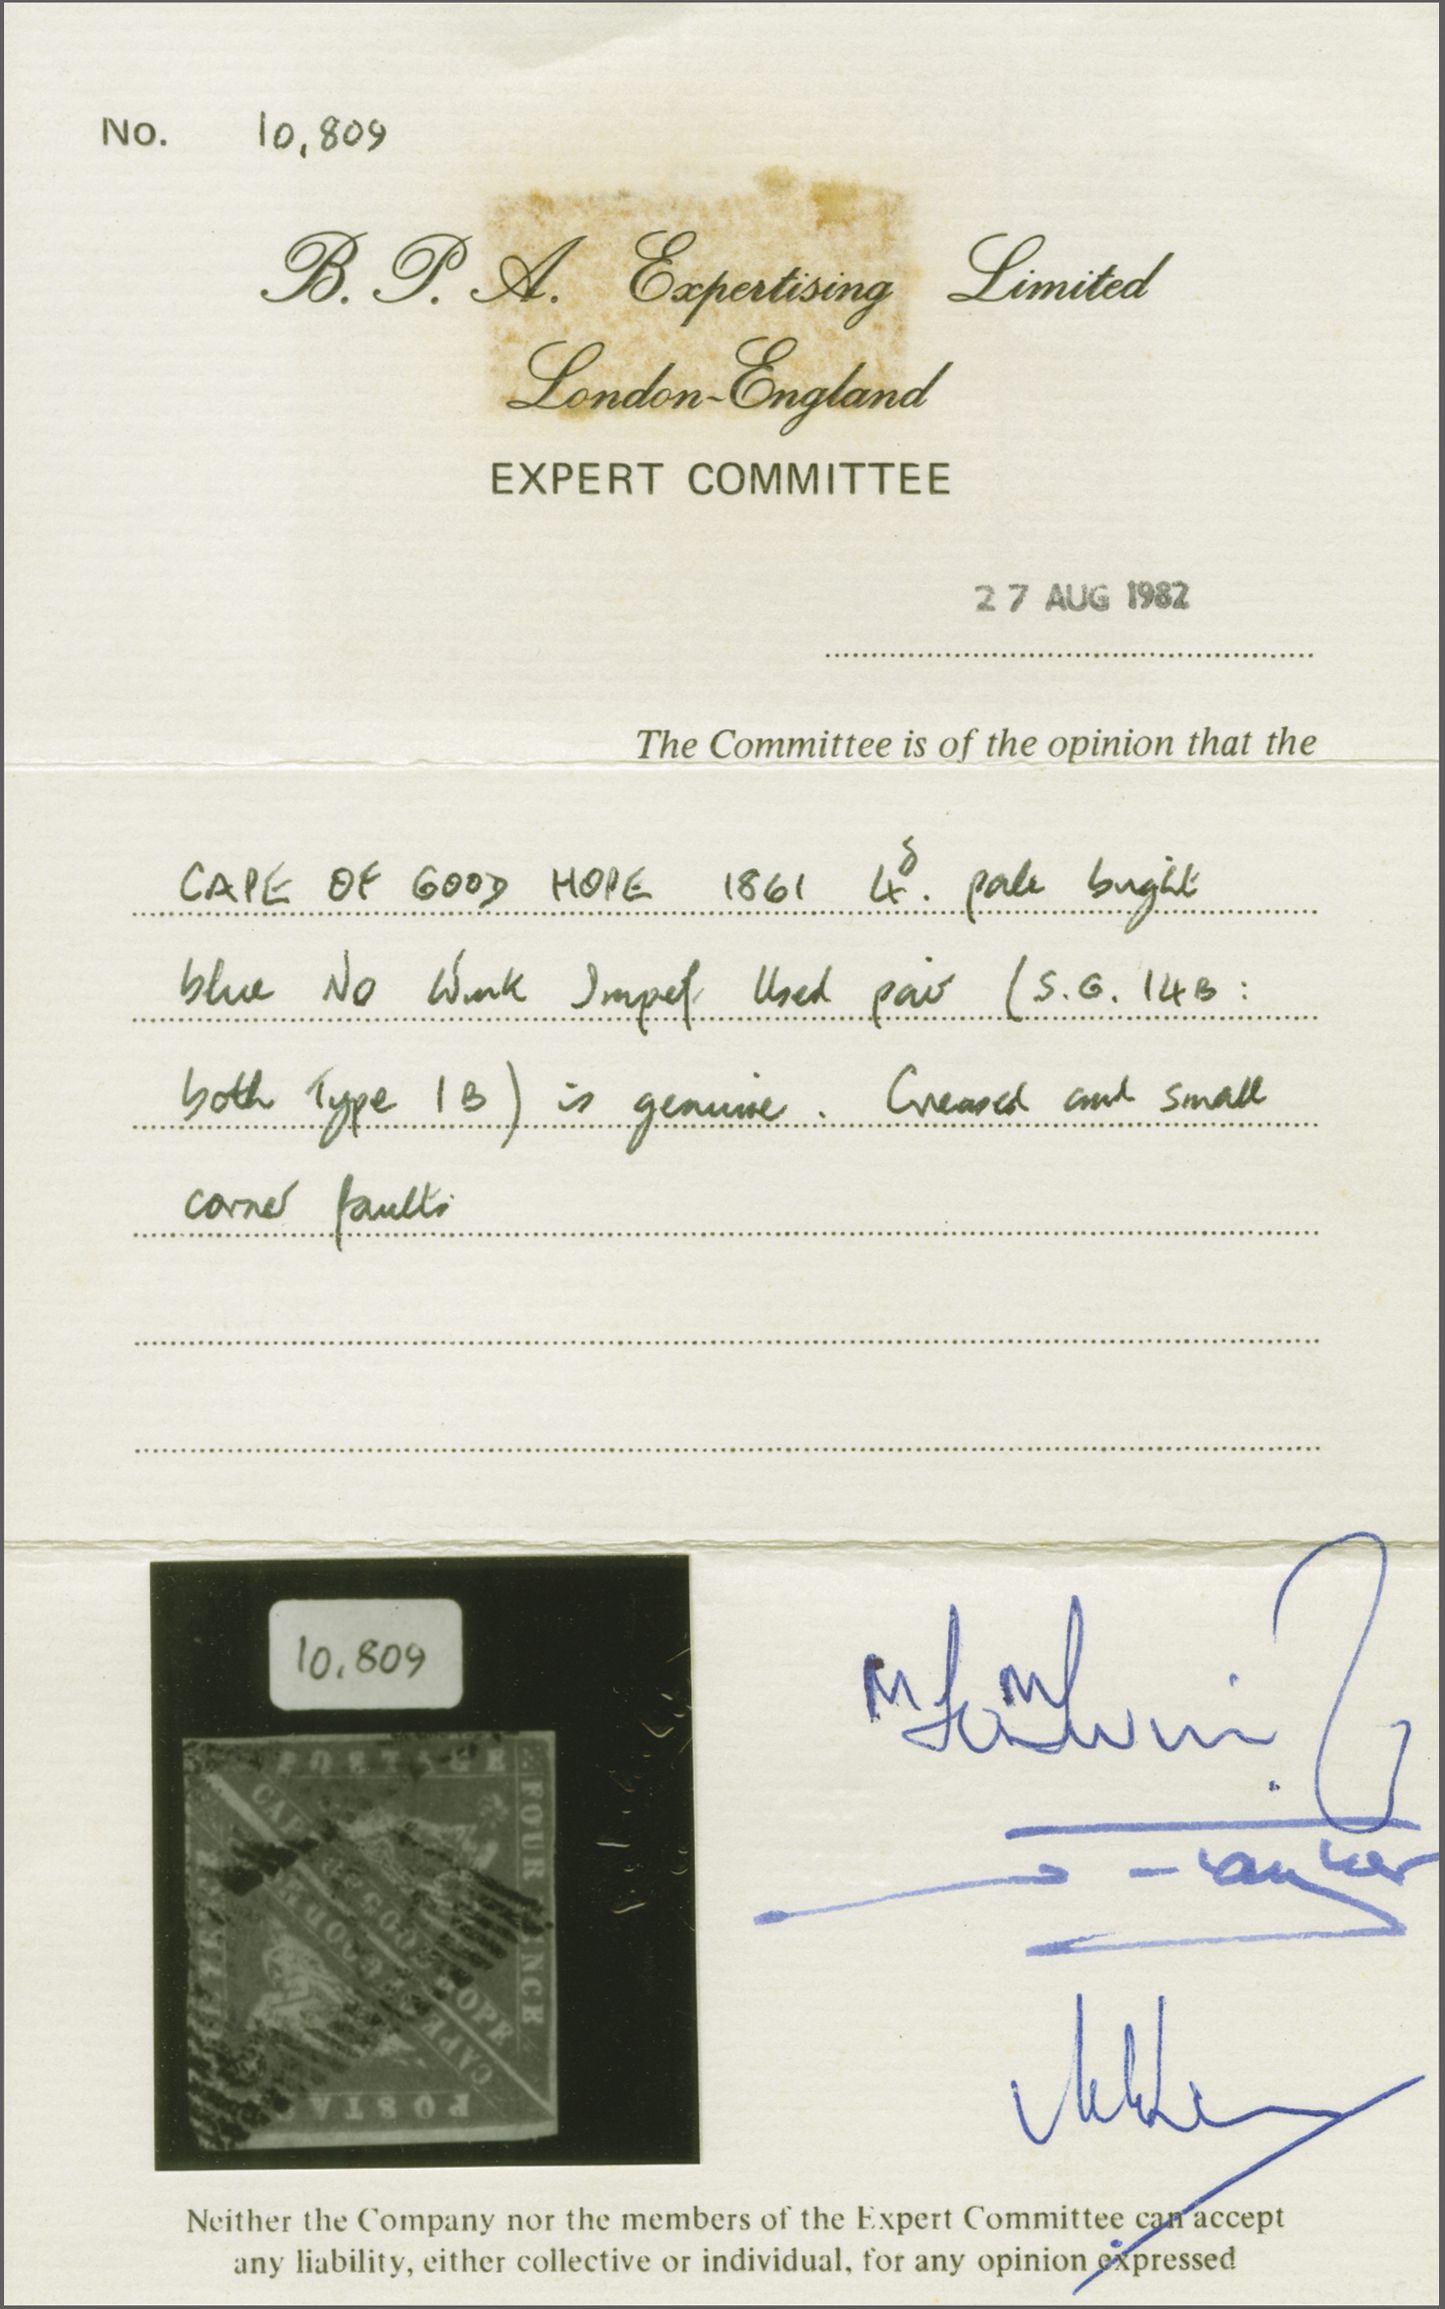 No. 10,809
B. P. A. Expertising Limited
London-England
EXPERT COMMITTEE
27 AUG 1982
The Committee is of the opinion that the
CAPE OF GOOD HOPE 1861 4d. pale bright
blue No Wmk Imperf Used pair (S.G. 14B:
both Type 1B) is genuine. Creased and small
corner faults
10,809
POSTAGE
FOUR
CAPE OF GOOD HOPE
POSTA
Neither the Company nor the members of the Expert Committee can accept
any liability, either collective or individual, for any opinion expressed